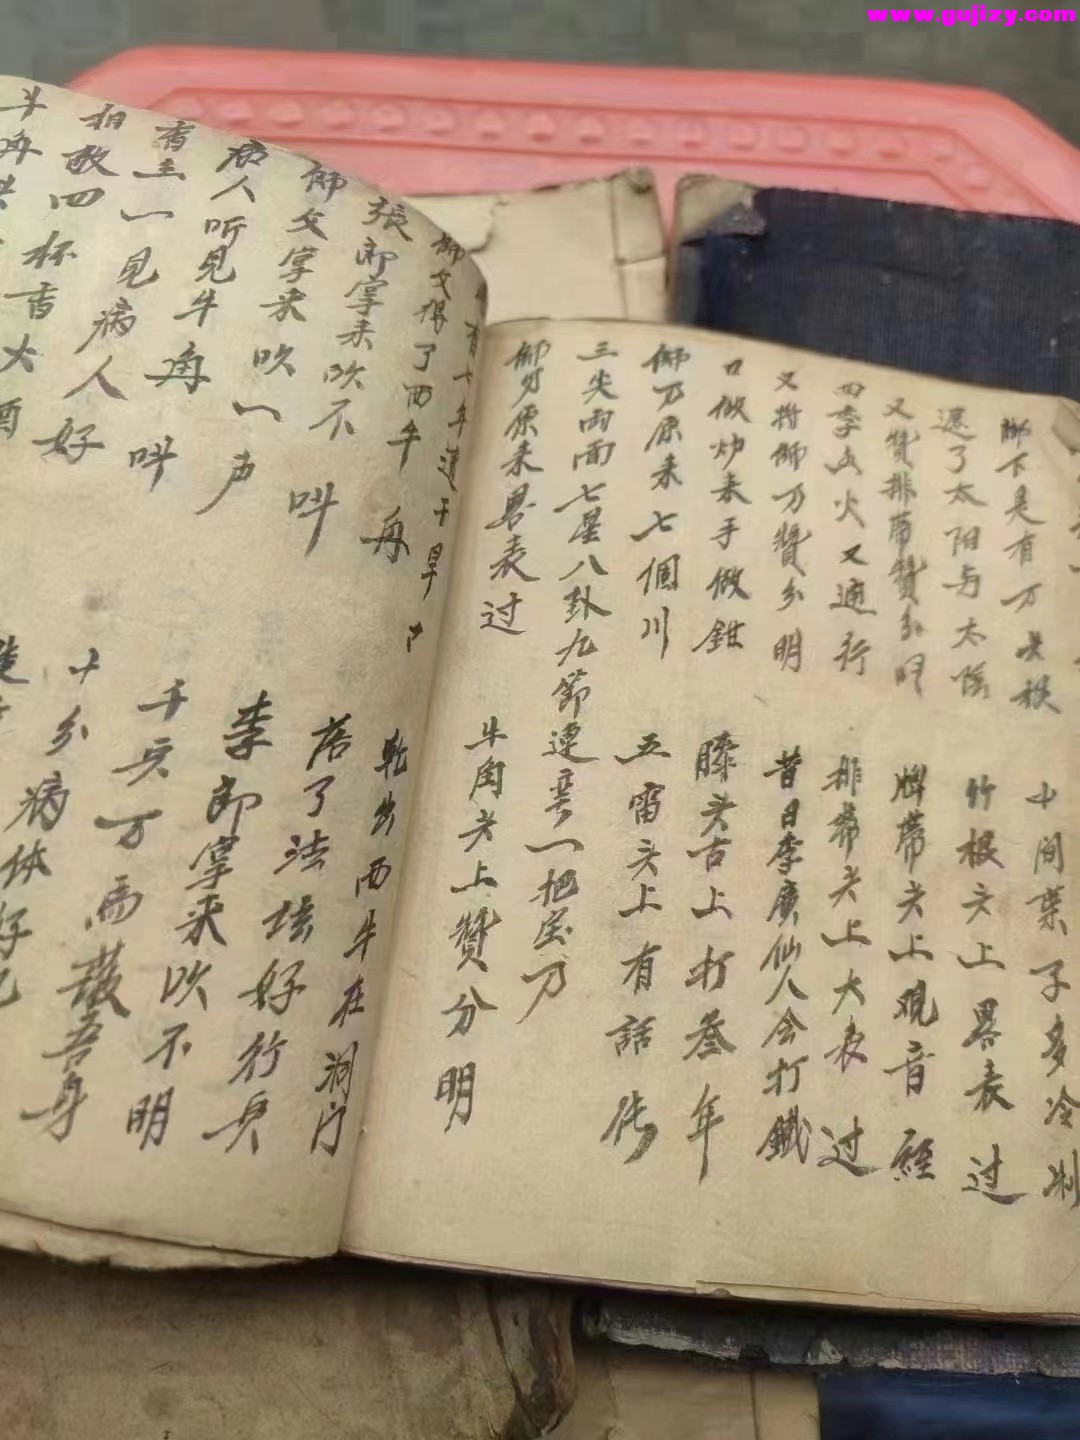 www.gujizy.com
脚下是有万
中间葉子多冷
遮了太阳与太陰
竹根头上畧表过
又贊排帶贊分明
牌帶头上观音經
四季山火又通行
排帶头上大表过
又将師刀贊分明
昔日李廣仙人会打鐵
口做炉来手做鉗
膝头古上打叁年
師刀原来七個川
五雷头上有話传
三尖両面七星八卦九節連 一把宝刀
師刀原来畧表过
牛角头上贊分明
有 年遭干旱
乾出西牛在洞门
師父 了西牛角
落了法坛好行兵
張郎掌来吹不叫
李郎掌来吹不明
師父掌来吹一声
千兵万馬 吾身
病人听见牛角叫
十分病体好
香主一见病人好
相敬四杯香
牛角